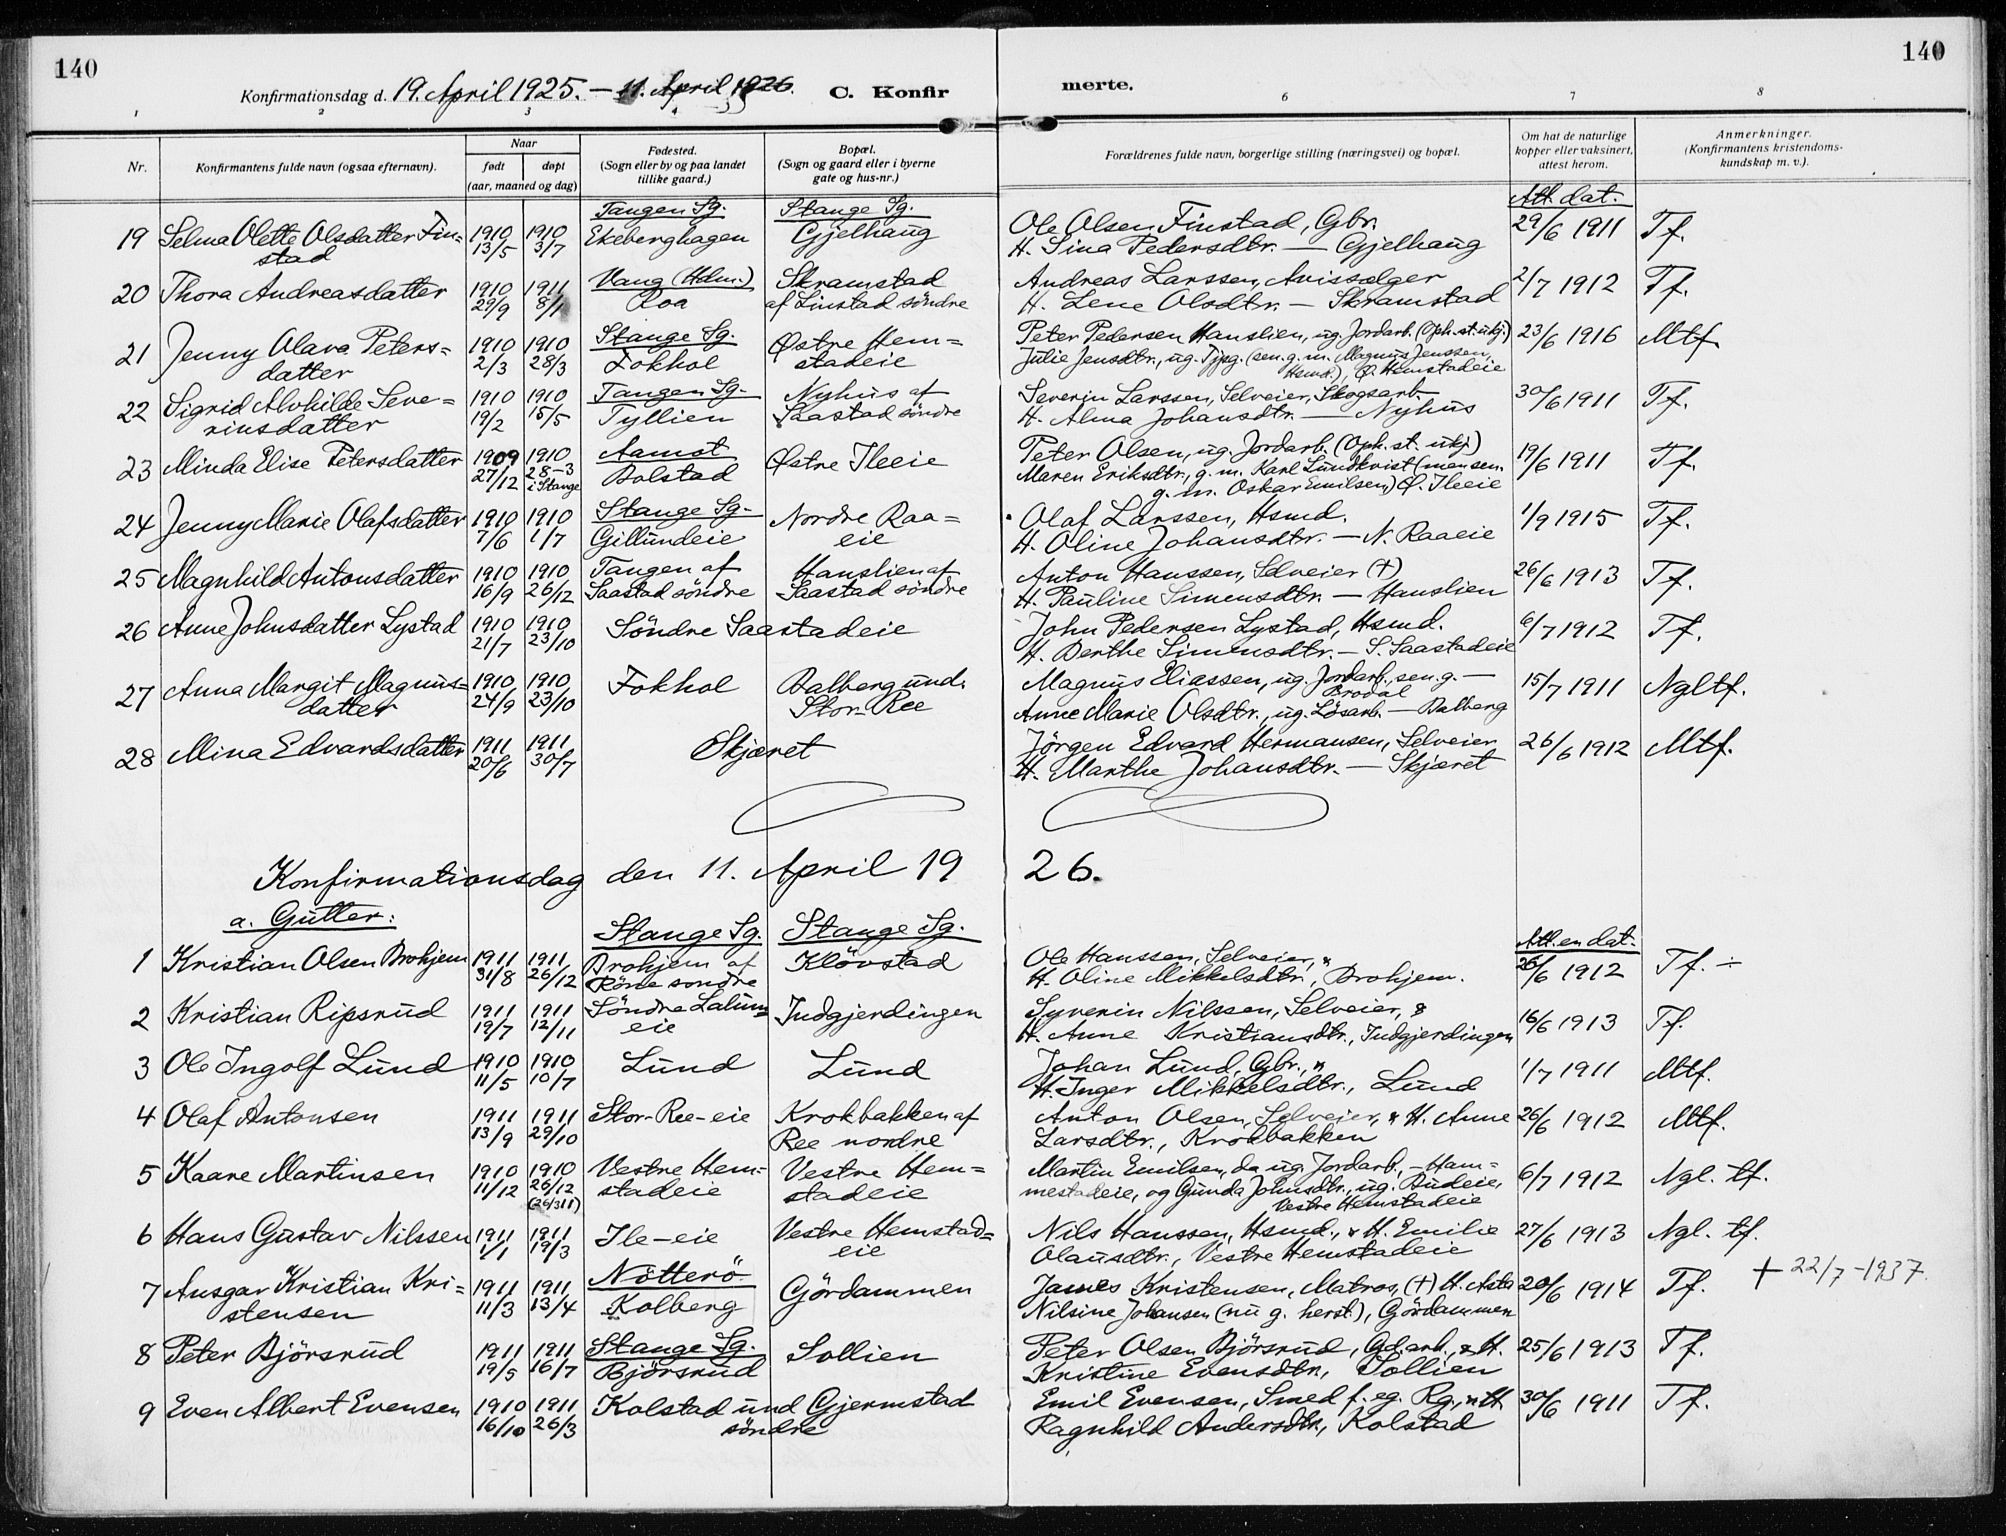 140
140
Konfirmationsdag d. 19. April 1925. – 11. April 1926. C. Konfir
merte.
1 2 3 4 6 7 8
Nr.
Konfirmantens fulde navn (ogsaa efternavn).
Naar
født
døpt
(aar, maaned og dag)
Fødested.
(Sogn eller by og paa landet
tillike gaard.)
Bopæl.
(Sogn og gaard eller i byerne
gate og hus-nr.)
Forældrenes fulde navn, borgerlige stilling (næringsvei) og bopæl.
Om hat de naturlige
kopper eller vaksinert,
attest herom.
Anmerkninger.
(Konfirmantens kristendoms-
kundskap m. v.).
Tangen Sg. Stange Sg. Att. dat.
19 Selma Olette Olsdatter Fin= 1910 1910 Ekeberghagen Gjelhaug Ole Olsen Finstad, Gbr. 29/6 1911 Tf.
stad 13/5 3/7 H. Sina Pedersdtr. — Gjelhaug
20 Thora Andreasdatter 1910 1911 Vang (Hdm.) Skramstad Andreas Larssen, Avissælger 2/7 1912 Tf.
29/9 8/1 Roa af Linstad söndre H. Lene Olsdtr. — Skramstad
21 Jenny Olava Peters= 1910 1910 Stange Sg. Østre Hem= Peter Pedersen Hanslien, ug. Jordarb. (Oph. st. ukj.) 23/6 1916 Mtf.
datter 2/3 28/3 Fokhol stadeie Julie Jensdtr., ug. Tjpg. (sen. g. m. Magnus Jenssen,
Hsmd.), Ø. Hemstadeie
22 Sigrid Alvhilde Seve= 1910 1910 Tangen Sg. Nyhus af Severin Larssen, Selveier, Skogsarb. 30/6 1911 Tf.
rinsdatter 19/2 15/5 Tyllien Saastad söndre H. Alma Johansdtr. — Nyhus
23 Minda Elise Petersdatter 1909 1910 Aamst Østre Ileeie Peter Olsen, ug. Jordarb. (Oph. st. ukj.) 19/6 1911 Tf.
27/12 28-3 Bolstad Maren Eriksdtr., g. m. Karl Lundkvist (men sen.
i Stange g. m. Oskar Emilsen) Ø. Ileeie
24 Jenny Marie Olafsdatter 1910 1910 Stange Sg. Nordre Raa= Olaf Larssen, Hsmd. 1/9 1915 Tf.
7/6 1/7 Gillundeie eie H. Oline Johansdtr. — N. Raaeie
25 Magnhild Antonsdatter 1910 1910 Tangen af Hanslien af Anton Hanssen, Selveier (†) 26/6 1913 Tf.
16/9 26/12 Saastad söndre Saastad söndre H. Pauline Simensdtr. — Hanslien
26 Anne Johnsdatter Lystad 1910 1910 Söndre Saastadeie John Pedersen Lystad, Hsmd. 6/7 1912 Tf.
21/7 23/10 H. Berthe Simensdtr. — S. Saastadeie
27 Anna Margit Magnus= 1910 1910 Fokhol Balberg und. Magnus Eliassen, ug. Jordarb., sen. g. — 15/7 1911 Ngltf.
datter 24/9 23/10 Stor-Ree Brodal
Anne Marie Olsdtr., ug. Lösarb. — Balberg
28 Mina Edvardsdatter 1911 1911 Skjæret Jörgen Edvard Hermansen, Selveier 26/6 1912 Mtf.
20/6 30/7 H. Marthe Johansdtr. — Skjæret
Konfirmationsdag den 11. April 19 26.
a. Gutter:
Stange Sg. Stange Sg. Att. en dat.
1 Kristian Olsen Brohjem 1911 1911 Brohjem af Klövstad Ole Hanssen, Selveier, & 26/6 1912 Tf. ÷
31/8 26/12 Röne söndre H. Oline Mikkelsdtr., Brohjem.
2 Kristian Ripsrud 1911 1911 Söndre Lalum= Indgjerdingen Syverin Nilssen, Selveier, & 16/6 1913 Tf.
19/7 12/11 eie H. Anne Kristiansdtr., Indgjerdingen
3 Ole Ingolf Lund 1910 1910 Lund Lund Johan Lund, Gbr., & 1/7 1911 Mtf.
11/5 10/7 H. Inger Mikkelsdtr., Lund
4 Olaf Antonsen 1911 1911 Stor-Ree-eie Krokbakken af Anton Olsen, Selveier, & H. Anne 26/6 1912 Mtf.
13/9 29/10 Ree nordre Larsdtr., Krokbakken
5 Kaare Martinsen 1910 1910 Vestre Hem= Vestre Hem= Martin Emilsen, da ug. Jordarb., – Ham= 6/7 1912 Ngl. tf.
11/12 26/12 stadeie stadeie mestadeie, og Gunda Johnsdtr., ug. Budeie,
(26/3 11) Vestre Hemstadeie
6 Hans Gustav Nilssen 1911 1911 Ile-eie Vestre Hemstad= Nils Hanssen, Hsmd., & H. Emilie 27/6 1913 Ngl. tf.
1/1 19/3 eie Olausdtr., Vestre Hemstadeie
7 Ansgar Kristian Kri= 1911 1911 Nötterö Gördammen James Kristensen, Matros, (†) H. Asta 20/6 1914 Tf. + 22/7-1937.
stensen 11/3 13/4 Kolberg Nilsine Johansen (nu g. herst.), Gördammen
8 Peter Björsrud 1911 1911 Stange Sg. Sollien Peter Olsen Björsrud, Gd.arb., & H. 25/6 1913 Tf.
19/5 16/7 Björsrud Kristine Evensdtr., Sollien
9 Even Albert Evensen 1910 1911 Kolstad und Gjermstad Emil Evensen, Smed f. eg. Rg., & H. 30/6 1911 Tf.
16/10 26/3 söndre Ragnhild Andersdtr., Kolstad